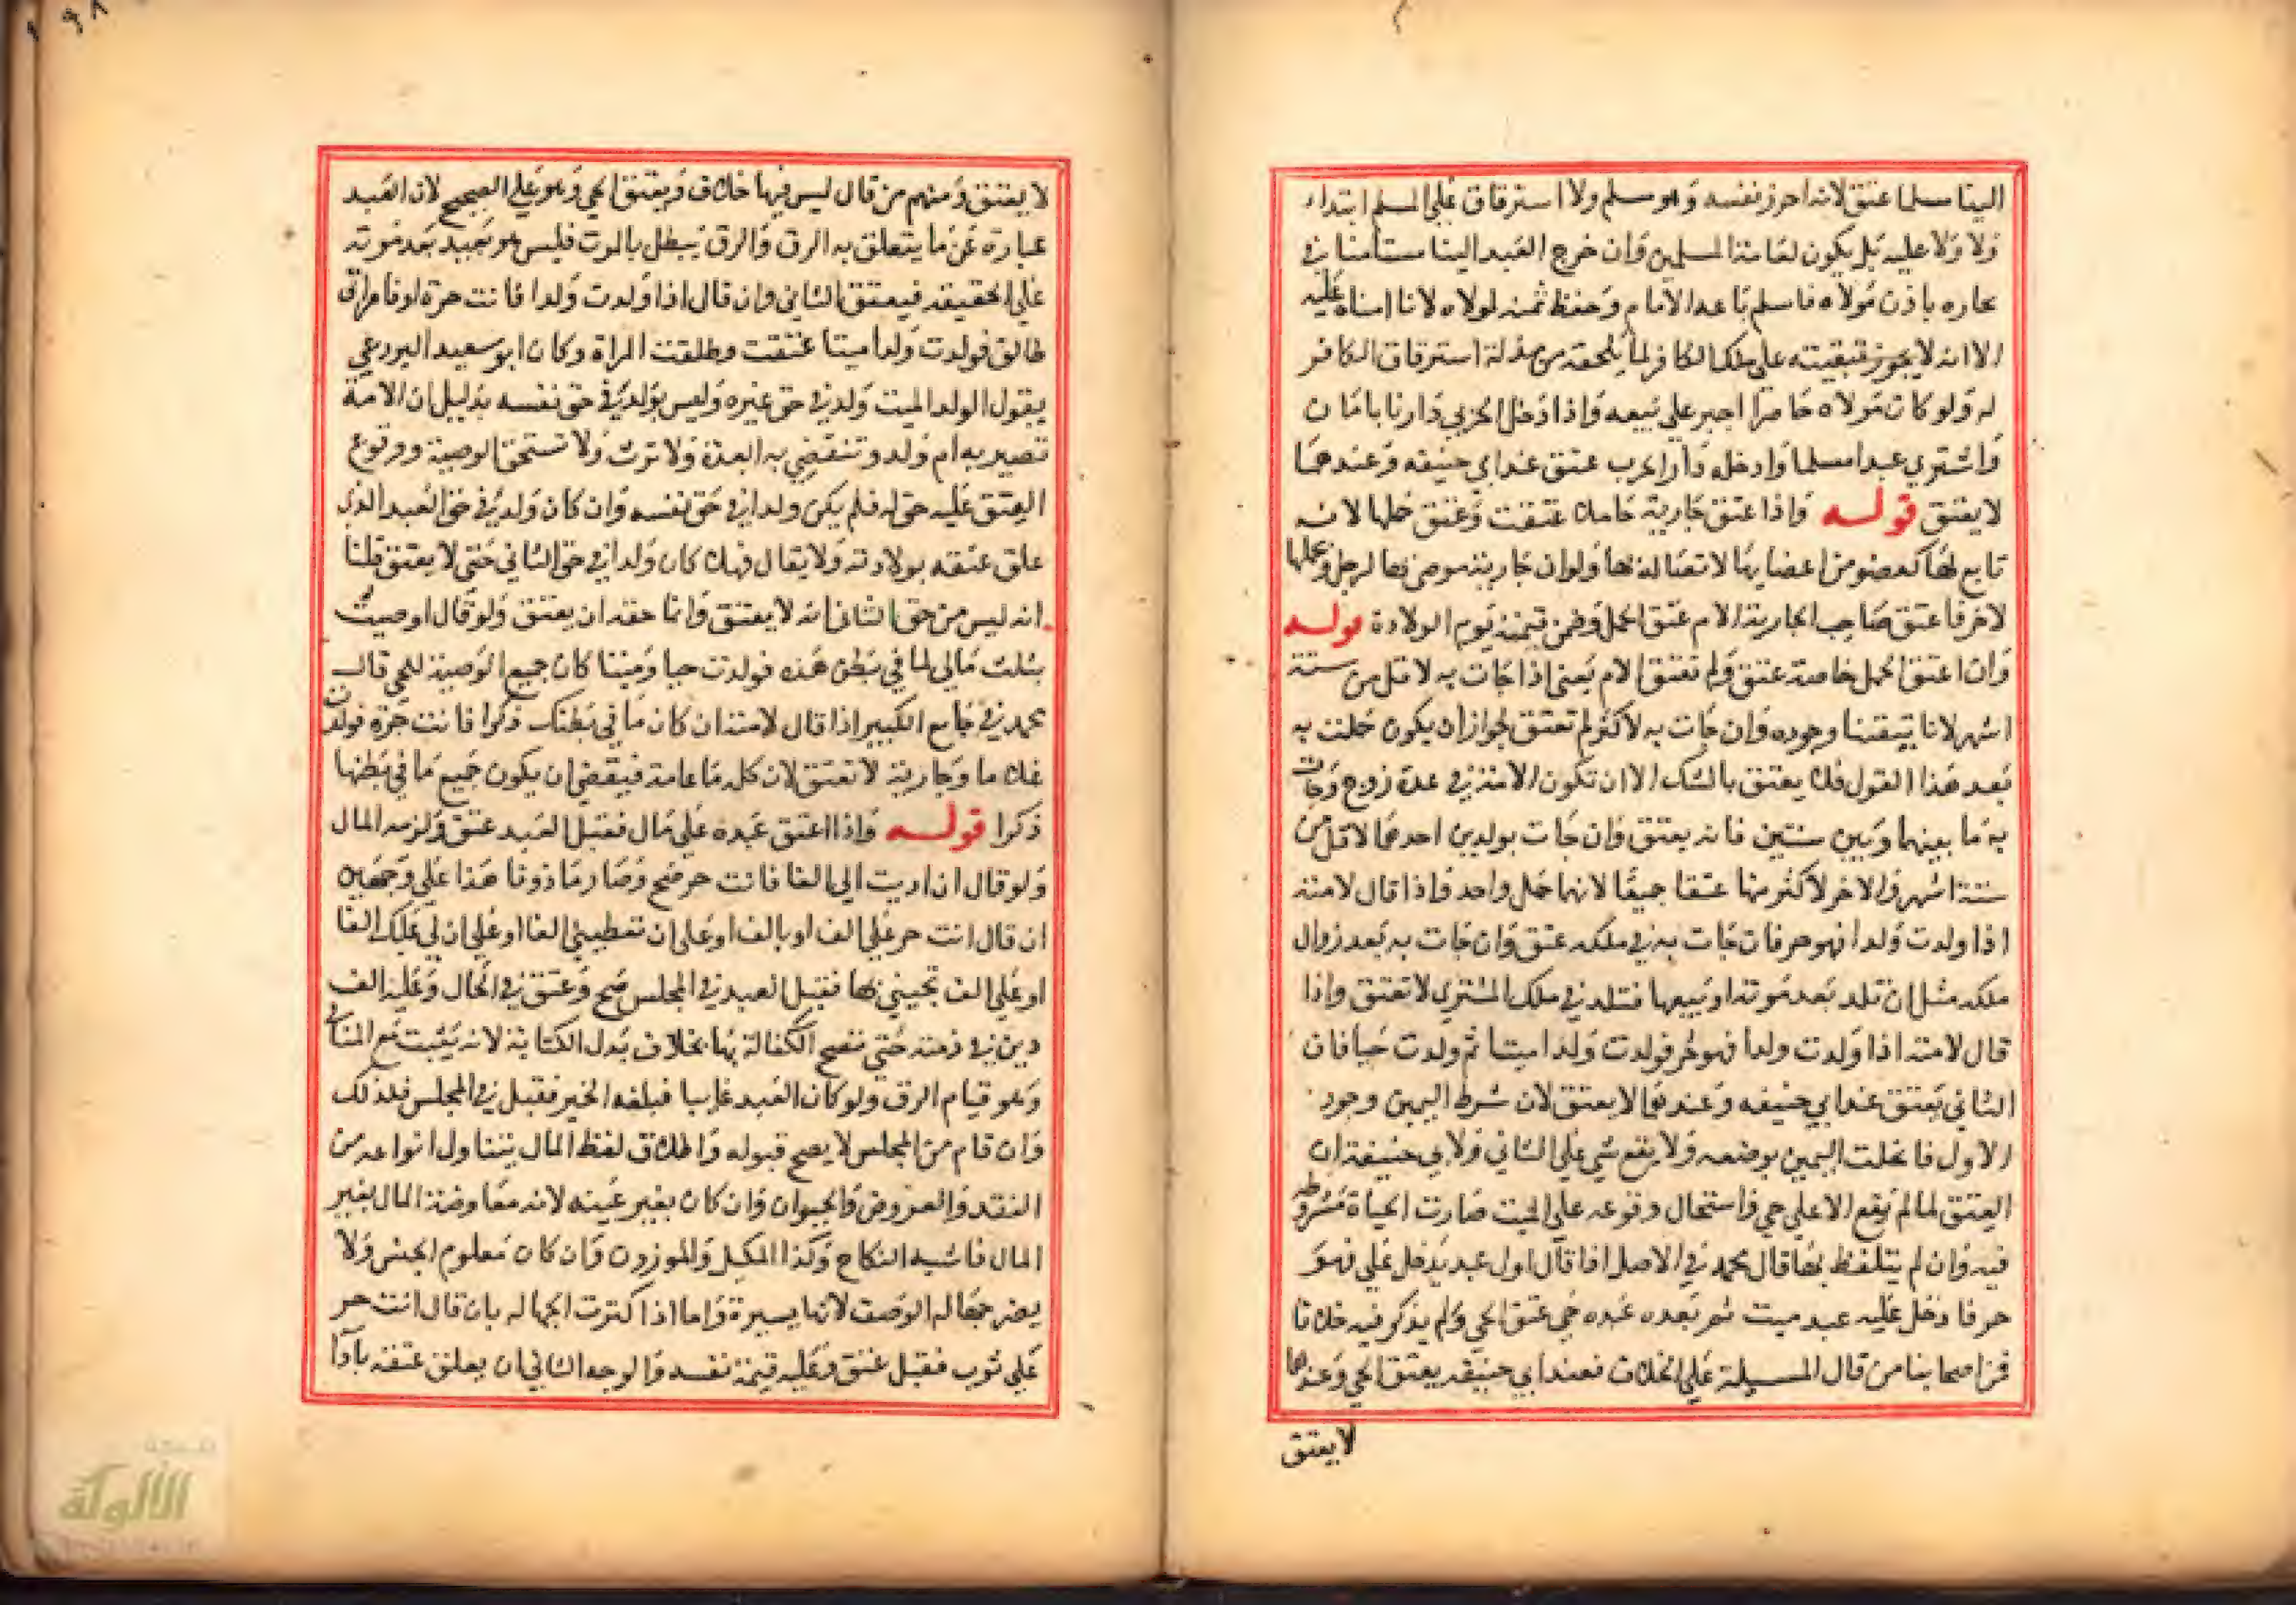 الينا مسلما عتق لانه احرز نفسه وهو مسلم ولا استرقاق على المسلم ابتداء
ولا ولاء عليه بل يكون لعامة المسلمين وان خرج العبد الينا مستامنا في
تجاره باذن مولاه فاسلم باعه الامام وحفظ ثمنه لمولاه لانا امناه عليه
الا انه لا يجوز تبقيته على ملك الكافر لما يلحقه من مذلة استرقاق الكافر
له ولو كان مولاه حاضرا اجبر على بيعه واذا دخل الحربي دارنا بامان
واشتري عبدا مسلما وادخله دار الحرب عتق عند ابي حنيفه وعندهما
لا يعتق قوله واذا عتق جارية حاملا عتقت وعتق حملها لانه
تابع لها كعضو من اعضايها لاتصاله بها ولو ان جارية موصي بها لرجل وبحملها
لاخر فاعتق صاحب الجارية الام عتق الحمل وضمن قيمته يوم الولادة قوله
وان اعتق الحمل خاصة عتق ولم تعتق الام يعني اذا جات به لاقل من ستة
اشهر لانا تيقنا وجوده وان جات به لاكثر لم تعتق لجواز ان يكون حملت به
بعد هذا القول فلا يعتق بالشك الا ان تكون الامة في عدة زوج وجات
به ما بينها وبين سنتين فانه يعتق وان جات بولدين احدهما لاقل من
ستة اشهر والاخر لاكثر منها عتقا جميعا لانهما حمل واحد واذا قال لامته
اذا ولدت ولدا فهو حر فان جات به في ملكه عتق وان جات به بعد زوال
ملكه مثل ان تلد بعد موته او يبيعها فتلد في ملك المشتري لا تعتق واذا
قال لامته اذا ولدت ولدا فهو حر فولدت ولدا ميتا ثم ولدت حيا فان
الثاني يعتق عند ابي حنيفه وعندهما لا يعتق لان شرط اليمين وجود
الاول فانحلت اليمين بوضعه ولا يقع شي على الثاني ولابي حنيفة ان
العتق لما لم يقع الا علي حي واستحال وقوعه على الميت صارت الحياة مشروطه
فيه وان لم يتلفظ بها قال محمد في الاصل اذا قال اول عبد يدخل علي فهو
حر فادخل عليه عبد ميت ثم بعده عبده حي عتق الحي ولم يذكر فيه خلافا
فمن اصحابنا من قال المسيلة على الخلاف فعند ابي حنيفه يعتق الحي وعندهما
لا يعتق
لا يعتق ومنهم من قال ليس فيها خلاف ويعتق الحي وهو على الصحيح لان العبد
عبارة عن ما يتعلق به الرق والرق يبطل بالموت فليس هو بعبد بعد موته
على الحقيقه فيعتق الثاني وان قال اذا ولدت ولدا فانت حرة او فامراتي
طالق فولدت ولدا ميتا عتقت وطلقت المراة وكان ابو سعيد البردعي
يقول الولد الميت ولد في حق غيره وليس بولد في حق نفسه بدليل ان الامة
تصير به ام ولد وتنقضي به العدة ولا ترث ولا تستحق الوصية ووقوع
العتق عليه حق له فلم يكن ولدا في حق نفسه وان كان ولد في حق العبد الذي
علق عتقه بولادته ولا يقال فهلا كان ولدا في حق الثاني حتى لا يعتق قلنا
انه ليس من حق الثاني انه لا يعتق وانما حقه ان يعتق ولو قال اوصيت
بثلث مالي لما في بطن هذه فولدت حيا وميتا كان جميع الوصية للحي قال
محمد في جامع الكبير اذا قال لامته ان كان ما في بطنك ذكرا فانت حرة فولدت
غلاما وجارية لا تعتق لان كله ما عامة فيقتضي ان يكون جميع ما في بطنها
ذكرا قوله واذا اعتق عبده على مال فقبل العبد عتق ولزمه المال
ولو قال ان اديت الي الفا فانت حر صح وصار ماذونا هذا علي وجهين
ان قال انت حر على الف او بالف او على ان تعطيني الفا او على ان لي عليك الفا
او على الف تجيني بها فقبل العبد في المجلس صح وعتق في الحال وعليه الف
دين في ذمته حتى تصح الكفالة بها بخلاف بدل الكتابة لانه يثبت مع المنافي
وهو قيام الرق ولو كان العبد غايبا فبلغه الخبر فقبل في المجلس فكذلك
وان قام من المجلس لا يصح قبوله واطلاق لفظ المال يتناول انواعه من
النقد والعروض والحيوان وان كان بغير عينه لانه معاوضة المال بغير
المال فاشبه النكاح وكذا المكيل والموزون وان كان معلوم الجنس ولا
يضر جهالة الوصف لانها يسيرة واما اذا كثرت الجهاله بان قال انت حر
على ثوب فقبل عتق وعليه قيمة نفسه والوجه الثاني ان يعلق عتقه باداء
الألوكة